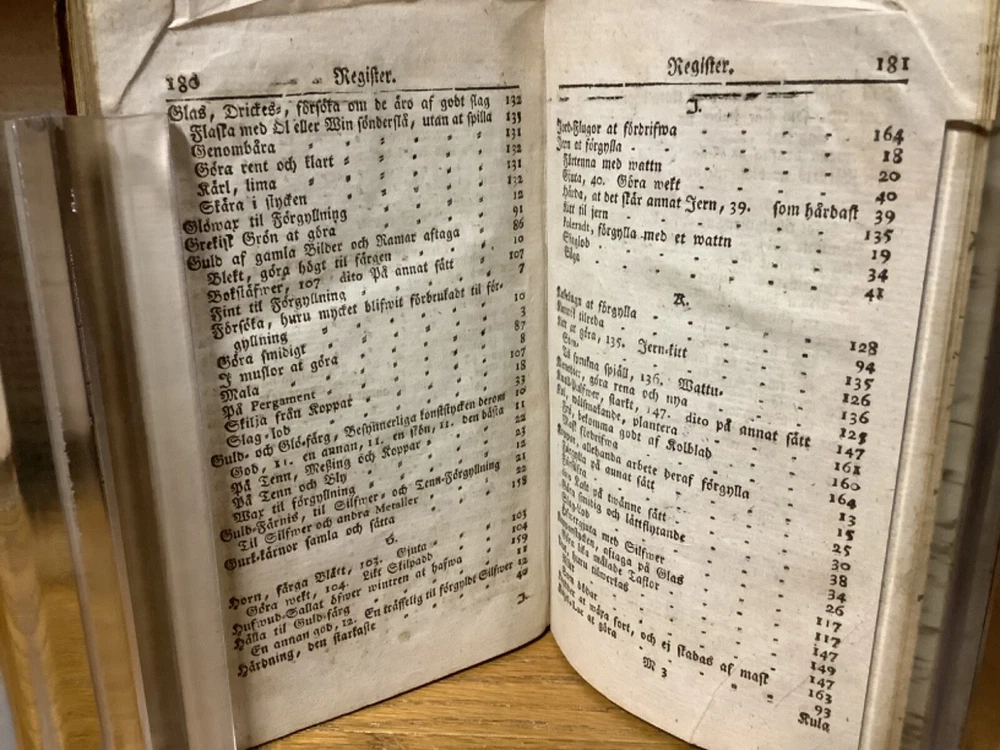 180 Register.
Glas, Drickes-, försöka om de äro af godt slag 132
Flaska med Öl eller Win sönderslå, utan at spilla 133
Genombåra 131
Göra rent och klart 132
Kärl, lima 131
Skära i stycken 132
Glöwax til Förgyllning 12
Grekisk Grön at göra 91
Guld af gamla Bilder och Ramar aftaga 86
Blekt, göra högt til färgen 10
Bokstäfwer, 107 dito På annat sätt 107
Fint til Förgyllning 7
Försöka, huru mycket blifwit förbrukadt til för-
gyllning 10
Göra smidigt 3
I muslor at göra 87
Mala 8
På Pergament 107
Skilja från Koppar 18
Slag-lod 33
Guld- och Glö-färg, Besynnerliga konststycken derom 10
God, 11. en annan, 11. en skön, 11. den bästa 11
På Tenn, Meßing och Koppar 22
På Tenn och Bly 23
Wax til förgyllning 12
Guld-Färnis, til Silfwer- och Tenn-Förgyllning 21
Til Silfwer och andra Metaller 22
Gurk-kärnor samla och sätta 158
Horn, färga Blått, 103. Gjuta 103
Göra wekt, 104. Likt Sköldpadd 104
Hufwud-Sallat öfwer wintren at hafwa 159
Hålla til Guld-färg 11
En annan god, 12. En träffelig til förgyldt Silfwer 12
Härdning, den starkaste 40
J.
Register. 181
J.
Jord-Flugor at fördrifwa 164
Jern at förgylla 18
Förtenna med wattn 20
Gjuta, 40. Göra wekt 40
Härda, at det skär annat Jern, 39. som hårdast 39
Kitt til jern 135
förgylla med et wattn 19
Slaglod 34
41
K.
at förgylla 128
tilreda 94
at göra, 135. Jern-kitt 135
Wattu- 126
Til spruckna spjäll, 136. 136
göra rena och nya 125
starkt, 147. dito på annat sätt 147
wälsmakande, plantera 161
bekomma godt af Kolblad 160
fördrifwa 164
allehanda arbete deraf förgylla 13
Förgylla på annat sätt 15
25
på twänne sätt 30
Göra smidig och lättflytande 38
Slag-lod 34
gjuta med Silfwer 26
aftaga på Glas 117
Göra lika målade Taflor 117
huru tilwerkas 147
149
147
at wäxa fort, och ej skadas af mask 163
at göra 93
M 3
Kula